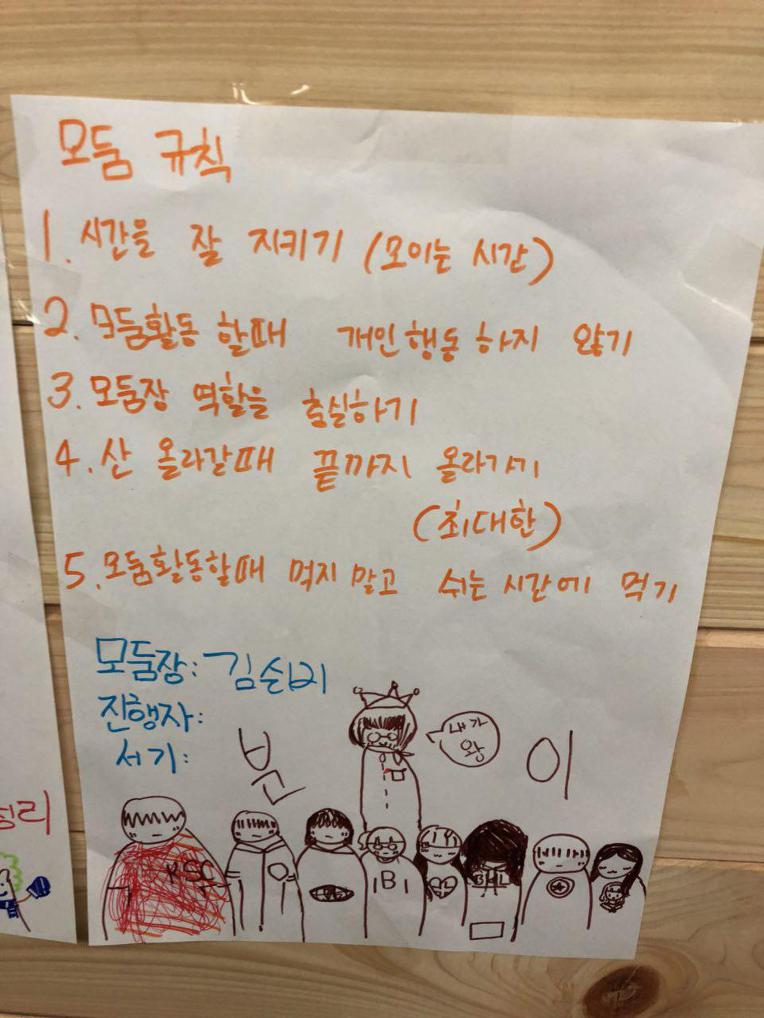 모둠 규칙
1. 시간을 잘 지키기 (모이는 시간)
2. 모둠활동 할때 개인행동 하지 않기
3. 모둠장 역할을 충실하기
4. 산 올라갈때 끝까지 올라가기
(최대한)
5. 모둠활동할때 먹지말고 쉬는 시간에 먹기
모둠장: 김순비
진행자:
서기:
내가
왕
분 이
KSC
B
BHL
정리